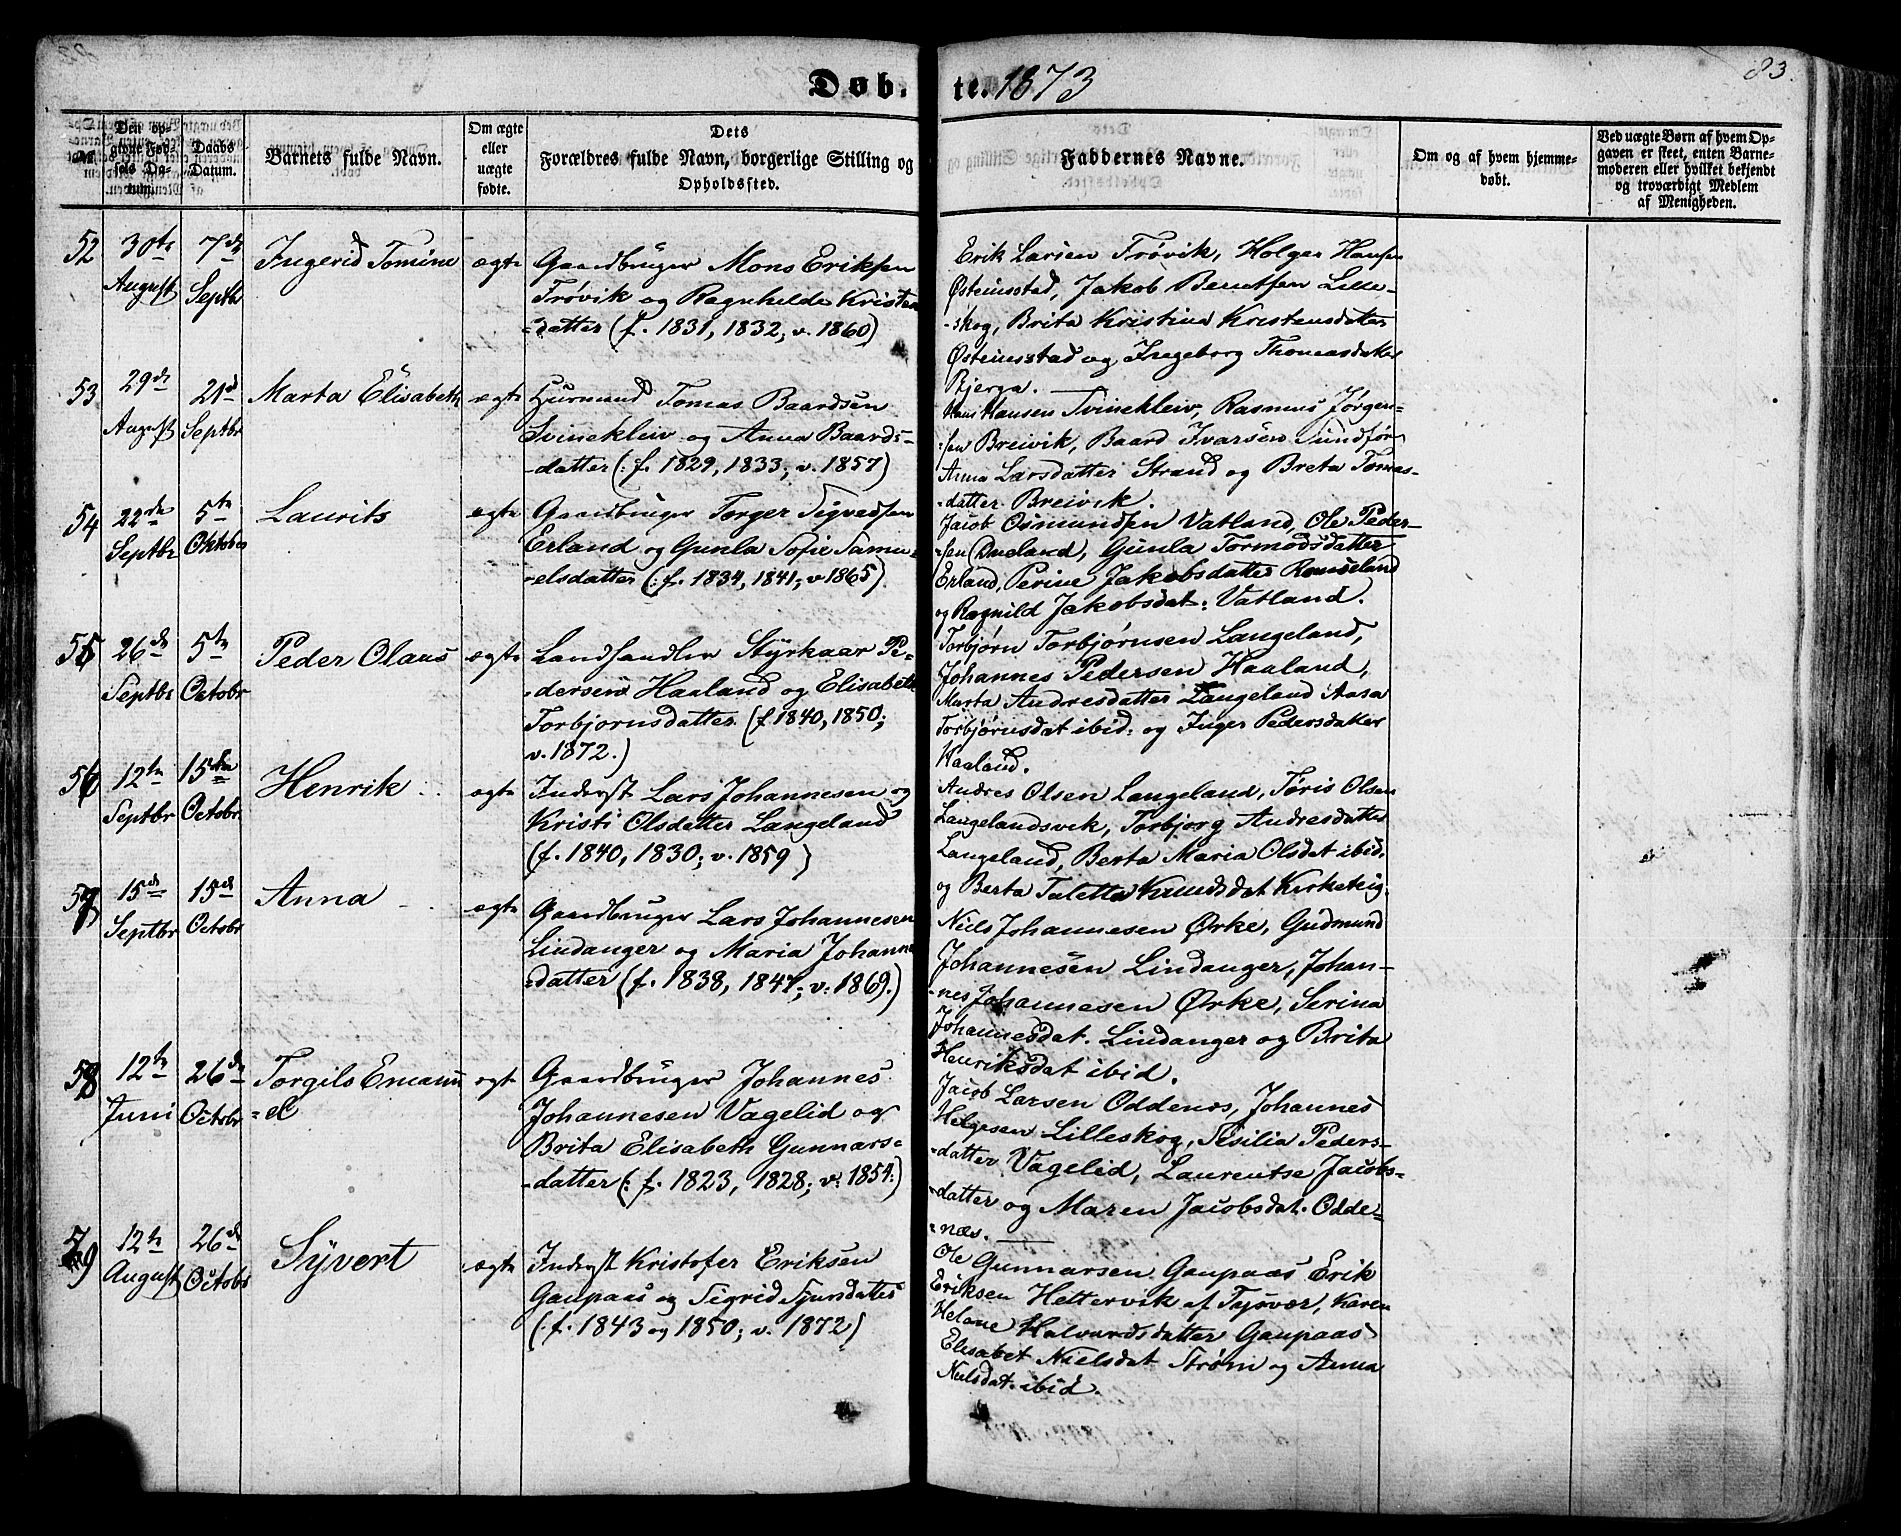 Døb. te. 1873
83.
№
Den op-
givne Fød-
sels Da-
tum.
Daabs
Datum.
Barnets fulde Navn.
Om ægte
eller
uægte
fødte.
Dets
Forældres fulde Navn, borgerlige Stilling og
Opholdssted.
Faddernes Navne.
Om og af hvem hjemme-
døbt.
Ved uægte Børn af hvem Op-
gaven er skeet, enten Barne-
moderen eller hvilket bekjendt
og troværdigt Medlem
af Menigheden.
52
30te
August
7de
Septbr
Ingerid Tomine
ægte
Gaardbruger Mons Eriksen
Trøvik og Ragnhilde Kristen
-datter (f. 1831, 1832, v. 1860)
Erik Larsen Trøvik, Holger Hansen
Østeinsstad, Jakob Bentsen Lille-
-skog, Brita Kristina Kristensdatter
Østeinsstad og Ingeborg Thomasdatter
Bjerga.
53
29de
August
21de
Septbr
Marta Elisabeth
ægte
Huusmand Tomas Baardsen
Svinekleiv og Anna Baards-
-datter (: f. 1829, 1833; v. 1857)
Hans Hansen Svinekleiv, Rasmus Jørgen-
-sen Breivik, Baard Ivarsen Sundfør
Anna Larsdatter Strand og Breta Tomas-
-datter Breivik.
54
22de
Septbr
5te
Oktober
Laurits
ægte
Gaardbruger Torger Sigvedsen
Erland og Gunla Sofie Samu-
-elsdatter (: f. 1834, 1841; v 1865).
Jacob Osmundsen Vatland, Ole Peder-
-sen Dueland, Gunla Tormodsdatter
Erland, Perine Jakobsdatter Romseland
og Ragnild Jakobsdat: Vatland.
55
26de
Septbr
5te
Octobr
Peder Olaus
ægte
Landhandler Styrkaar Pe-
-dersen Haaland og Elisabeth
Torbjørnsdatter (f 1840, 1850;
v. 1872.)
Torbjørn Torbjørnsen Langeland,
Johannes Pedersen Haaland,
Marta Andresdatter Langeland Aasa
Torbjørnsdat ibid: og Inger Pedersdatter
Haaland.
56
12te
Septbr
15de
Octobr
Henrik
ægte
Inderst Lars Johannesen og
Kristi Olsdatter Langeland
(f. 1840, 1830; v. 1859)
Andres Olsen Langeland, Tøris Olsen
Langelandsvik, Torbjorg Andresdatter
Langeland, Berta Maria Olsdat ibid.
og Berta Taletta Knudsdat Kirketeig.
57
15de
Septbr
15de
Octobr
Anna
ægte
Gaardbruger Lars Johannesen
Lindanger og Maria Johanne
-datter (f. 1838, 1847; v: 1869.)
Niels Johannesen Ørke, Gudmund
Johannesen Lindanger, Johan-
-nes Johannesen Ørke, Serina
Johannesdat. Lindanger og Brita
Henriksdat ibid.
58
12te
Juni
26de
Octobr
Torgils Emanu
-el
ægte
Gaardbruger Johannes
Johannesen Vagelid og
Brita Elisabeth Gunnars-
-datter (: f. 1823, 1828; v: 1854:)
Jacob Larsen Oddenes, Johannes
Helgesen Lilleskog, Sesilia Peders-
-datter Vagelid, Laurentse Jacobs-
-datter og Maren Jacobsdat. Odde-
-næs.
59
12te
August
26de
Octobr
Syvert
ægte
Inderst Kristofer Eriksen
Gaupaas og Sigrid Sjursdatter
(: f. 1843 og 1850; v. 1872)
Ole Gunnarsen Gaupaas Erik
Eriksen Hettervik af Tysvær, Karen
Helene Halvardsdatter Gaupaas
Elisabet Nielsdat Strøm og Anna
Nielsdat. ibid.